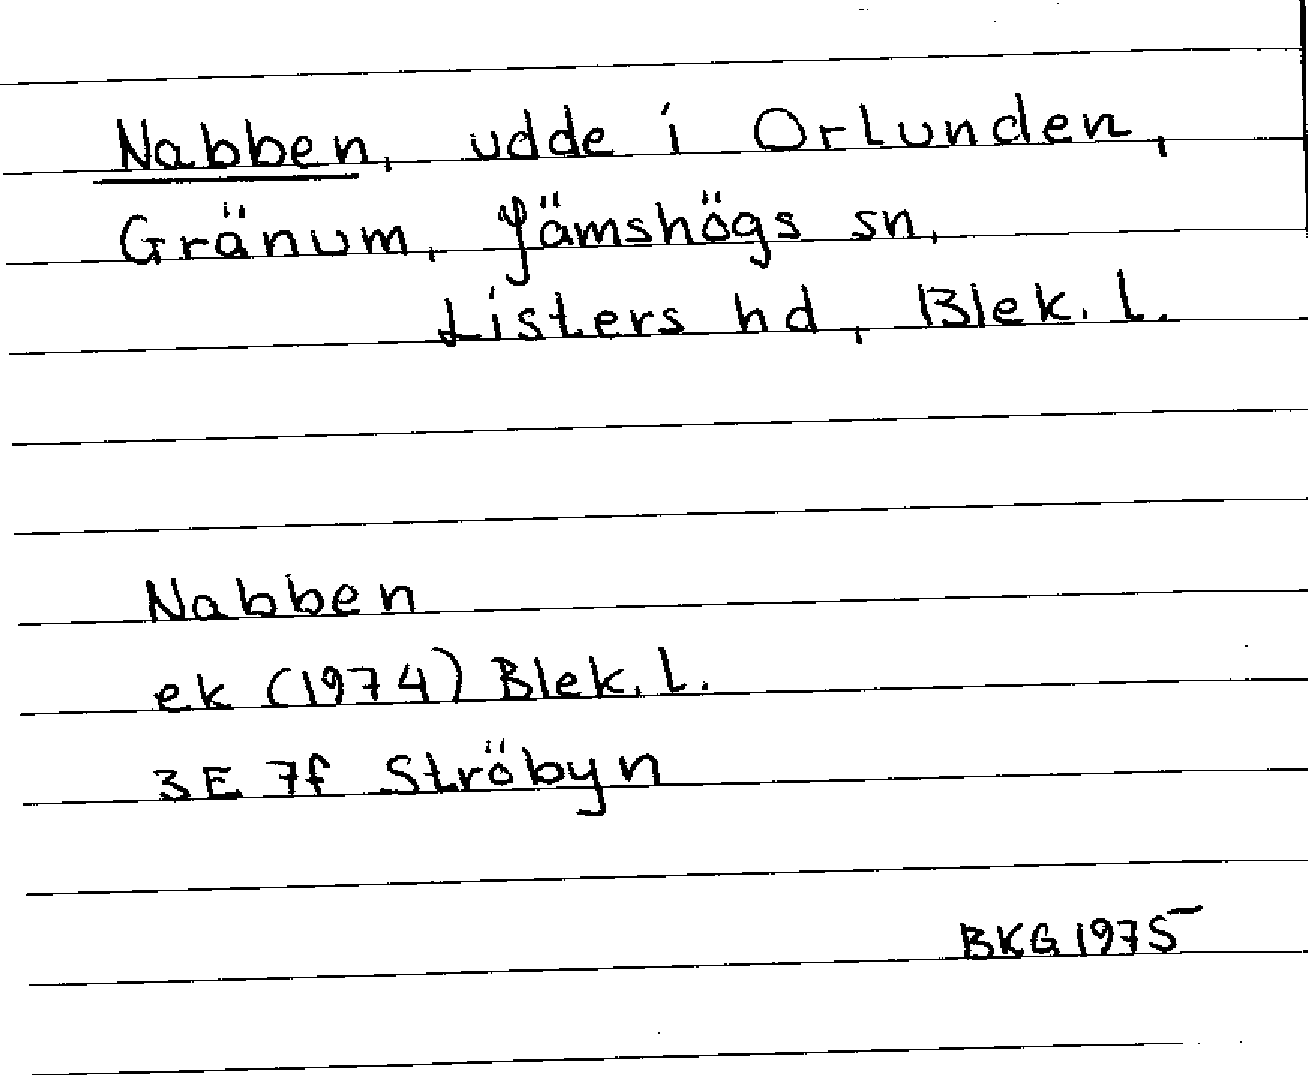 Nabben, udde i Orlunden,
Gränum, Jämshögs sn,
Listers hd, Blek. l.
Nabben
ek (1974) Blek. l.
3E 7f Ströbyn
BKG 1975